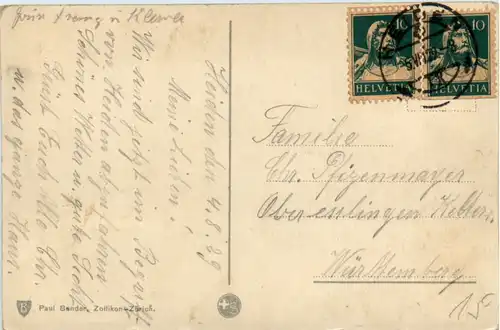 Heiden den 4.8.29
Meine Lieben!
Wir sind jetzt im Begriff
von Heiden abzufahren.
Schönes Wetter u. gute
Euch Alle Chr.
u. das ganze Haus.
u Klara
Familie
Chr. Pfizenmayer
Oberesslingen
Württemberg
10
HELVETIA
10
HELVETIA
15
Paul Bender, Zollikon-Zürich.